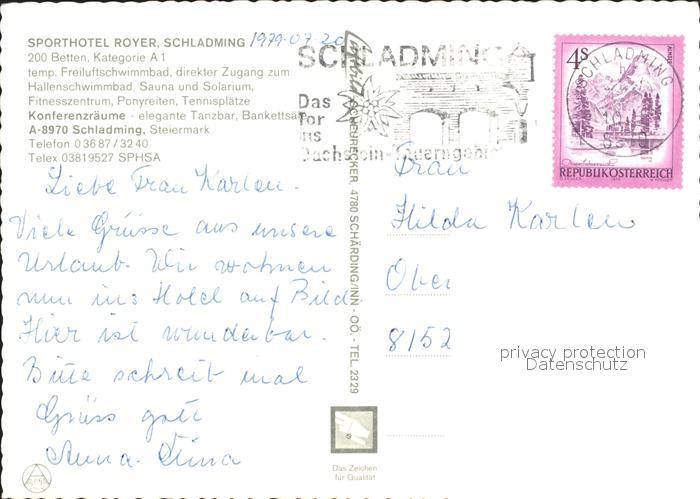 SPORTHOTEL ROYER, SCHLADMING 1979-07-20
200 Betten, Kategorie A 1
temp. Freiluftschwimmbad, direkter Zugang zum
Hallenschwimmbad, Sauna und Solarium,
Fitnesszentrum, Ponyreiten, Tennisplätze
Konferenzräume - elegante Tanzbar, Bankettsaal
A-8970 Schladming, Steiermark
Telefon 0 36 87 / 32 40
Telex 03819527 SPHSA
SCHLADMING
Das
Tor
ins
Dachstein-Tauerngebiet
4S
SCHLADMING
REPUBLIK ÖSTERREICH
Liebe Frau Karlen.
Viele Grüsse aus unsere
Urlaub. Wir wohnen
nun ins Hotel auf Bild
Hier ist wunderbar.
Bitte schreib mal
Grüss gott
Anna-Stina
SCHEURECKER, 4780 SCHÄRDING/INN - OÖ. - TEL. 2329
Frau
Hilda Karlen
Ober
8152
privacy protection
Datenschutz
Das Zeichen
für Qualität